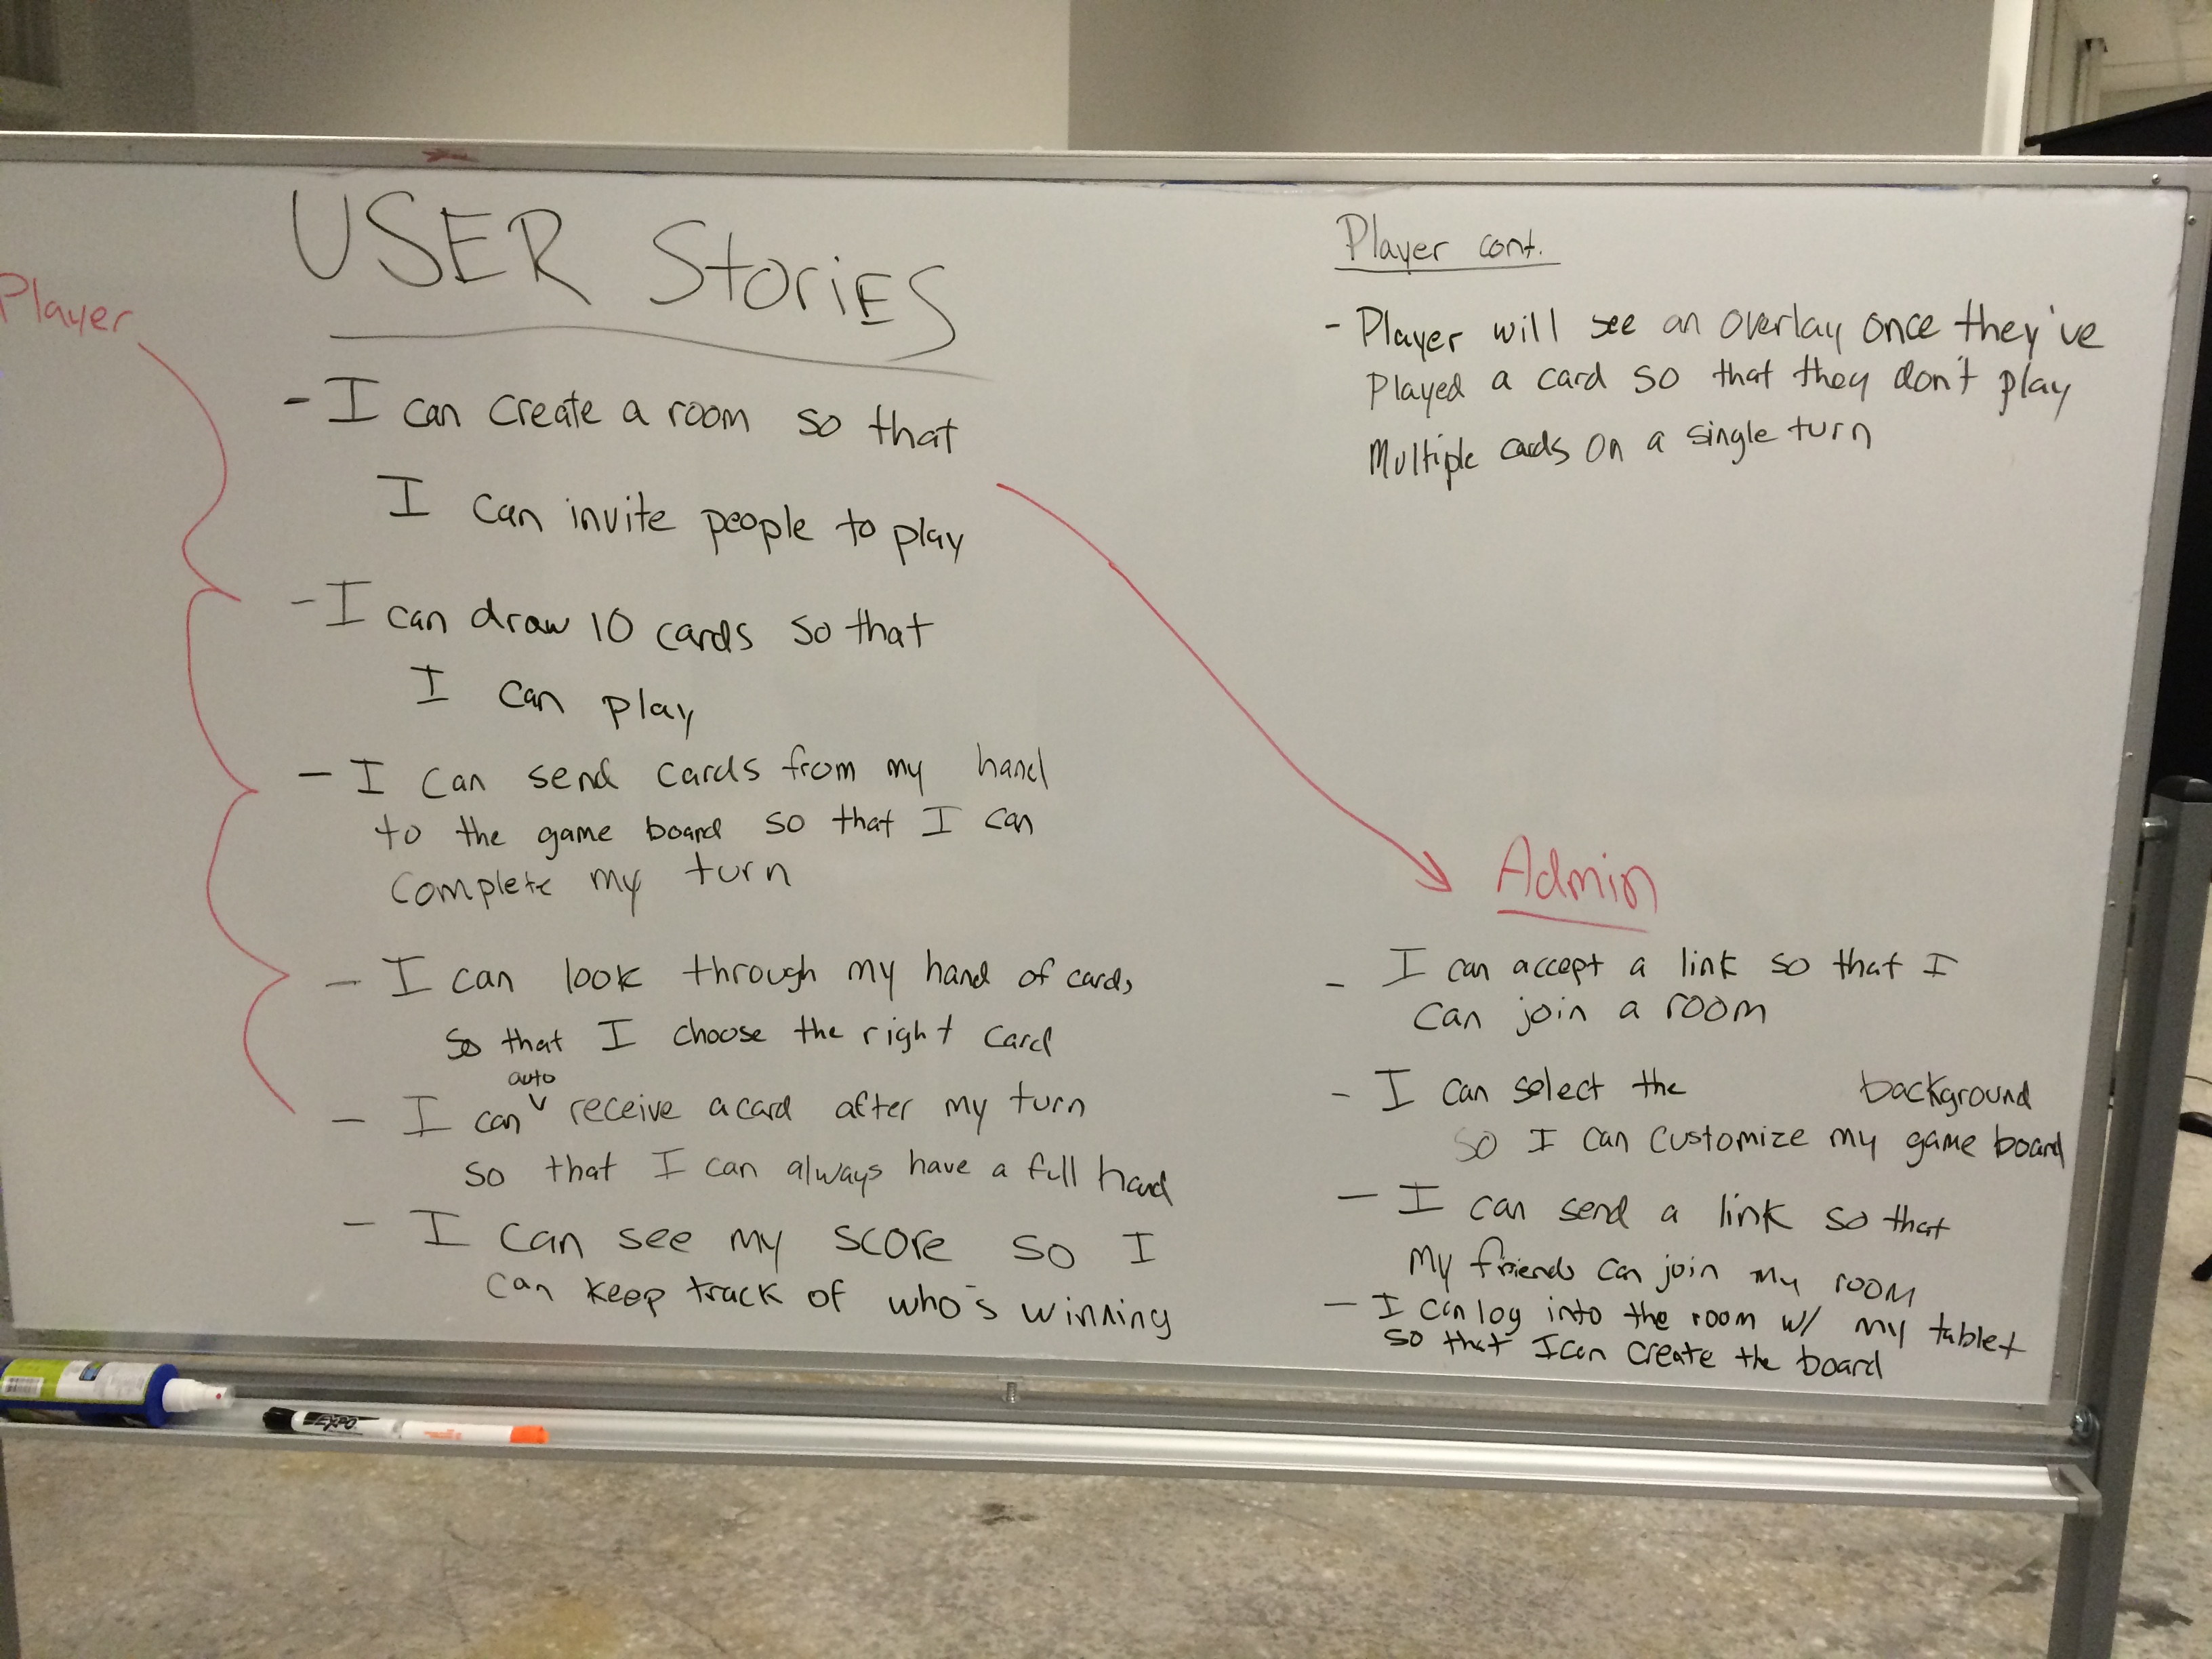 USER StoriES
Player
- I can create a room so that
I can invite people to play
- I can draw 10 cards so that
I can play
- I can send cards from my hand
to the game board so that I can
complete my turn
- I can look through my hand of cards
so that I choose the right card
auto
- I can ∨ receive a card after my turn
so that I can always have a full hand
- I can see my score so I
can keep track of who's winning
Player cont.
- Player will see an overlay once they've
Played a card so that they don't play
Multiple cards on a single turn
Admin
- I can accept a link so that I
can join a room
- I can select the background
so I can customize my game board
- I can send a link so that
My friends can join my room
- I can log into the room w/ my tablet
so that I can create the board
EXPO